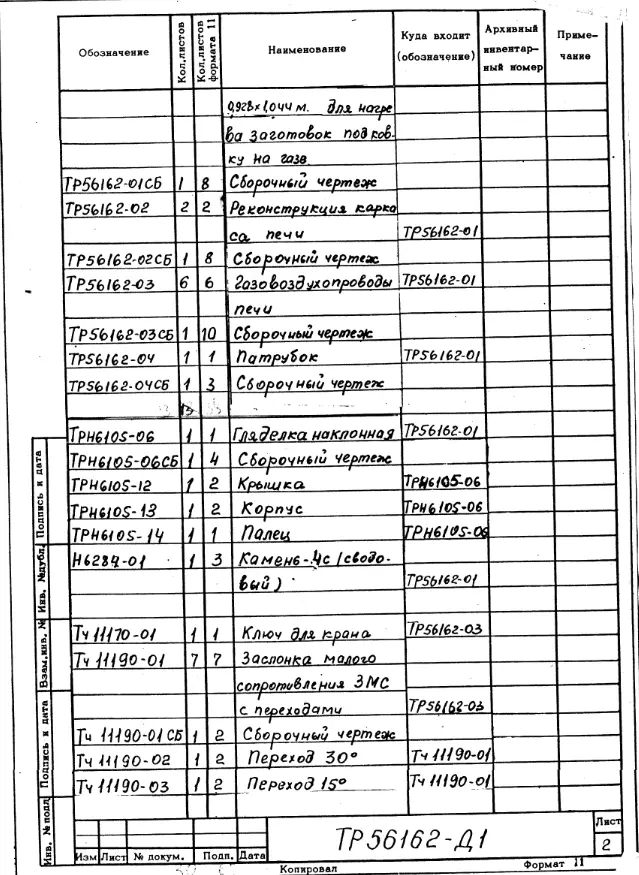 Обозначение Кол.листов Кол.листов формата 11 Наименование Куда входит (обозначение) Архивный инвентарный номер Примечание
0,928х1,044 м. для нагре
ва заготовок под ков-
ку на газе
ТР56162-01СБ 1 8 Сборочный чертеж
ТР56162-02 2 2 Реконструкция карка
са печи ТР56162-01
ТР56162-02СБ 1 8 Сборочный чертеж
ТР56162-03 6 6 Газовоздухопроводы ТР56162-01
печи
ТР56162-03СБ 1 10 Сборочный чертеж
ТР56162-04 1 1 Патрубок ТР56162-01
ТР56162-04СБ 1 3 Сборочный чертеж
ТРН6105-06 1 1 Гляделка наклонная ТР56162-01
ТРН6105-06СБ 1 4 Сборочный чертеж
ТРН6105-12 1 2 Крышка ТРН6105-06
ТРН6105-13 1 2 Корпус ТРН6105-06
ТРН6105-14 1 1 Палец ТРН6105-06
Н6284-01 1 3 Камень-Чс (сводо-
вый) ТР56162-01
Тч 11170-01 1 1 Ключ для крана ТР56162-03
Тч 11190-01 7 7 Заслонка малого
сопротивления ЗМС
с переходами ТР56162-03
Тч 11190-01 СБ 1 2 Сборочный чертеж
Тч 11190-02 1 2 Переход 30° Тч 11190-01
Тч 11190-03 1 2 Переход 15° Тч 11190-01
Инв. № подл. Подпись и дата Взам.инв. № Инв. №дубл. Подпись и дата
Изм Лист № докум. Подп. Дата
ТР56162-Д1
Лист
2
Копировал Формат 11